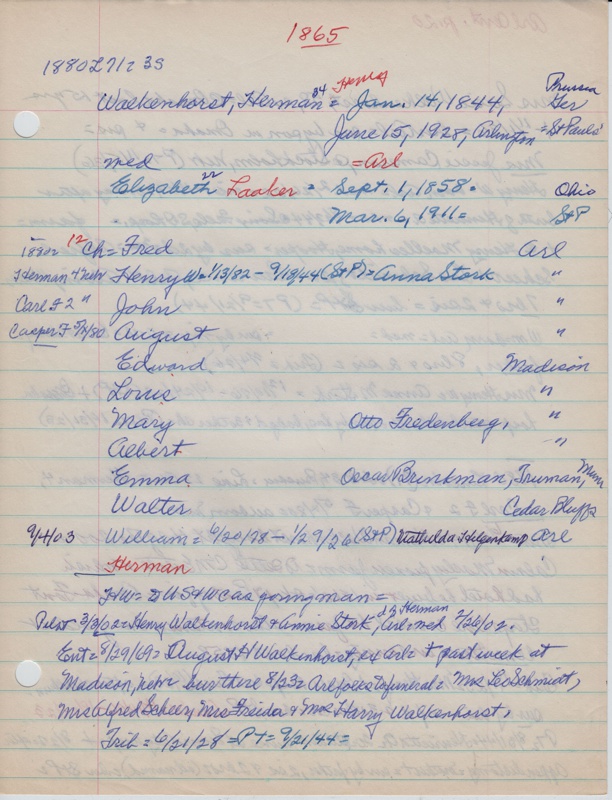 1865
1880 L 71 z 3S
Walkenhorst, Herman 34 Henry = Jan. 14, 1844, Prussia Ger
June 15, 1928, Arlington = St Pauls'
med = Arl
Elizabeth 22 Laaker = Sept. 1, 1858. Ohio
Mar. 6, 1911= StP
1880z 12 Ch= Fred Arl
Herman 4 Nebr Henry W= 1/13/82 - 9/18/44 (StP) = Anna Stork "
Carl F 2 " John "
Casper F 5/80 August "
Edward Madison
Louis "
Mary Otto Fredenberg, "
Albert "
Emma Oscar Brinkman, Truman, Minn
Walter Cedar Bluffs
9/4/03 William = 6/20/78 - 1/29/26 (StP) Mathelda Helgenkamp Arl
Herman
HW= US + WC as young man =
Pilot 3/3/02 = Henry Walkenhorst + Annie Stork, d z Herman Arl= med 2/26/02.
Ent= 8/29/69= August H Walkenhorst, ex Arl= + past week at
Madison, Nebr bur there 8/23= Arl folks to funeral= Mrs Leo Schmidt,
Mrs Alfred Scheer, Mrs Freida + Mrs Harry Walkenhorst,
Trib= 6/21/28 = P+= 9/21/44=